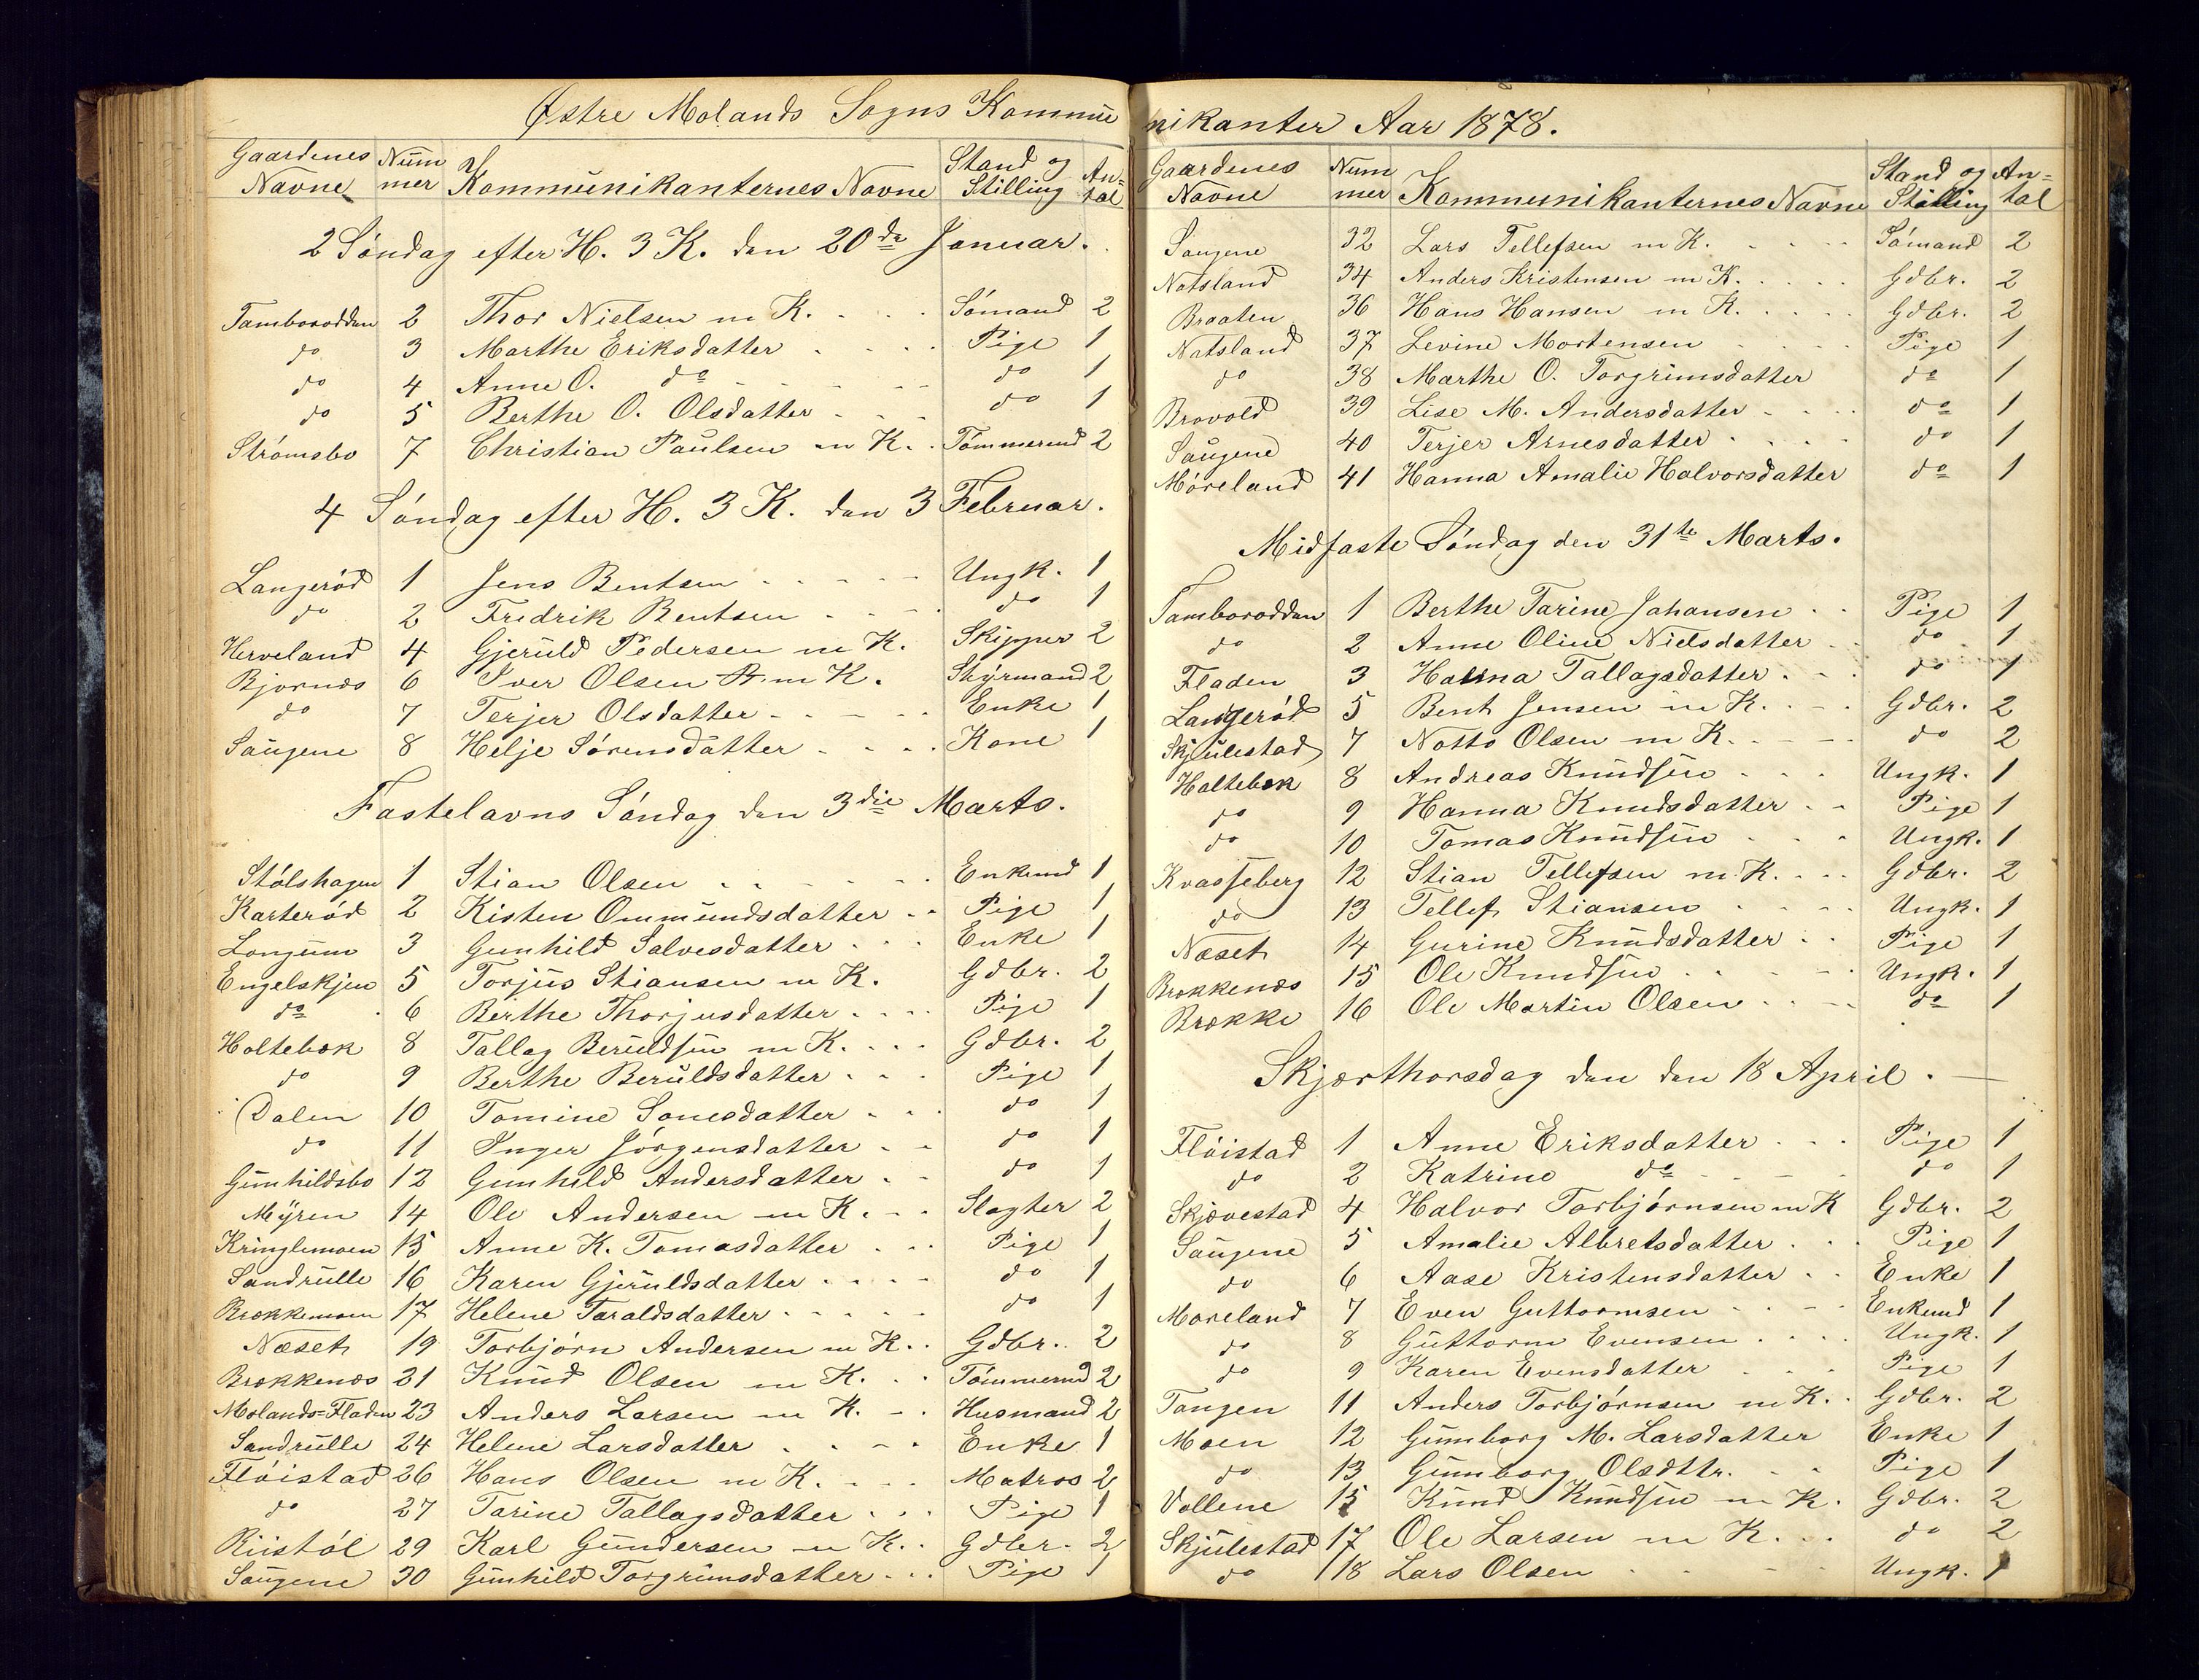 Østre Molands Sogns Kommunikanter Aar 1878.
Gaardenes Navne Nummer Kommunikanternes Navne Stand og Stilling Antal
2 Søndag efter H. 3 K. den 20de Januar.
Tamborodden 2 Thor Nielsen m K. Sømand 2
do 3 Marthe Eriksdatter Pige 1
do 4 Anne O. do do 1
do 5 Berthe O. Olsdatter do 1
Strømsbo 7 Christian Paulsen m K. Tømmermd 2
4 Søndag efter H. 3 K. den 3 Februar.
Langerød 1 Jens Bentsen Ungk. 1
do 2 Fredrik Bentsen do 1
Herveland 4 Gjeruld Pedersen m K. Skipper 2
Bjornæs 6 Iver Olsen m K. Styrmand 2
do 7 Terjer Olsdatter Enke 1
Saugene 8 Helje Sørensdatter Kone 1
Fastelavns Søndag den 3die Marts.
Stølshagen 1 Stian Olsen Enkemd 1
Karterød 2 Kisten Ommundsdatter Pige 1
Longum 3 Gunhild Salvesdatter Enke 1
Engelskjen 5 Torjus Stiansen m K. Gdbr. 2
do 6 Berthe Thorjusdatter Pige 1
Holtebæk 8 Tallag Beruldsen m K. Gdbr. 2
do 9 Berthe Beruldsdatter Pige 1
Dalen 10 Tomine Sonesdatter do 1
do 11 Inger Jørgensdatter do 1
Gunhildsbo 12 Gunhild Andersdatter do 1
Myren 14 Ole Andersen m K. Slagter 2
Kringlemoen 15 Anne K. Tomasdatter Pige 1
Sandrulle 16 Karen Gjeruldsdatter do 1
Brækkemoen 17 Helene Taraldsdatter do 1
Næset 19 Torbjørn Andersen m K. Gdbr. 2
Brækkenæs 21 Knud Olsen m K. Tømmermd 2
Molands=Fladen 23 Anders Larsen m K. Husmand 2
Sandrulle 24 Helene Larsdatter Enke 1
Fløistad 26 Hans Olsen m K. Matros 2
do 27 Tarine Tallagsdatter Pige 1
Riistøl 29 Karl Gundersen m K. Gdbr. 2
Saugene 30 Gunhild Torgrimsdatter Pige 1
Gaardenes Navne Nummer Kommunikanternes Navne Stand og Stilling Antal
Saugene 32 Lars Tellefsen m K. Sømand 2
Natsland 34 Anders Kristensen m K. Gdbr. 2
Braaten 36 Hans Hansen m K. Gdbr. 2
Natsland 37 Levine Mortensen Pige 1
do 38 Marthe O. Torgrimsdatter do 1
Brovold 39 Lise M. Andersdatter do 1
Saugene 40 Terjer Arnesdatter do 1
Møreland 41 Hanna Amalie Halvorsdatter do 1
Midfaste Søndag den 31te Marts.
Tamborodden 1 Berthe Tarine Johansen Pige 1
do 2 Anne Oline Nielsdatter do 1
Fladen 3 Hanna Tallagsdatter do 1
Langerød 5 Bent Jensen m K. Gdbr. 2
Skjulestad 7 Notto Olsen m K. do 2
Holtebæk 8 Andreas Knudsen Ungk. 1
do 9 Hanna Knudsdatter Pige 1
do 10 Tomas Knudsen Ungk. 1
Kvasseberg 12 Stian Tellefsen m K. Gdbr. 2
do 13 Tellef Stiansen Ungk. 1
Næset 14 Gurine Knudsdatter Pige 1
Brækkenæs 15 Ole Knudsen Ungk. 1
Brække 16 Ole Martin Olsen do 1
Skjærthorsdag den den 18 April.
Fløistad 1 Anne Eriksdatter Pige 1
do 2 Katrine do do 1
Skjævestad 4 Halvor Torbjørnsen m K Gdbr. 2
Saugene 5 Amalie Albretsdatter Pige 1
do 6 Aase Kristensdatter Enke 1
Moreland 7 Even Guttormsen Enkemd 1
do 8 Guttorm Evensen Ungk. 1
do 9 Karen Evensdatter Pige 1
Tangen 11 Anders Torbjørnsen m K. Gdbr. 2
Moen 12 Gunborg M. Larsdatter Enke 1
do 13 Gunborg Olsdttr. Pige 1
Vollene 15 Knud Knudsen m K. Gdbr. 2
Skjulestad 17 Ole Larsen m K. do 2
do 18 Lars Olsen Ungk. 1